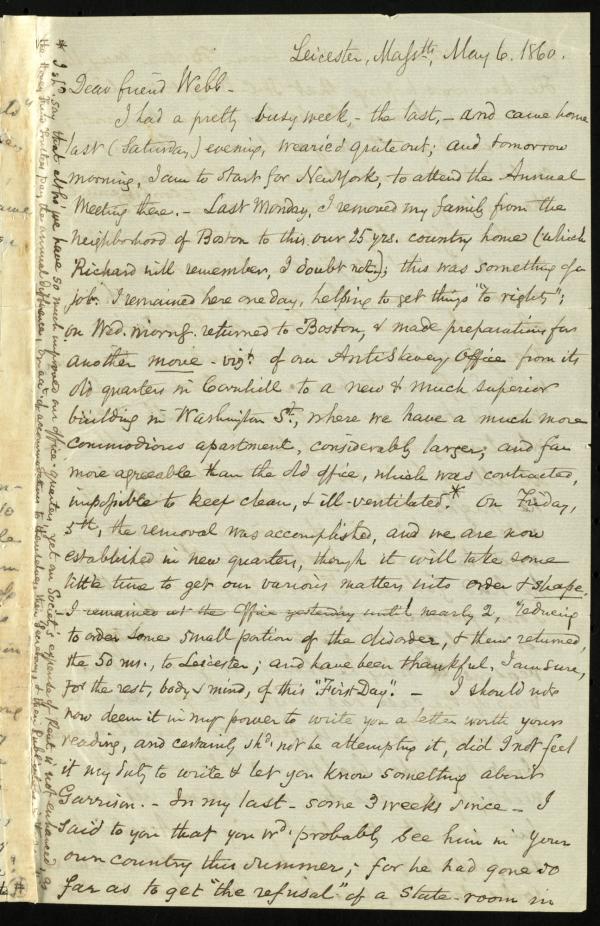 Leicester, Massts, May 6. 1860.
Dear friend Webb -
I had a pretty busy week, - the last, - and came home
last (Saturday) evening, wearied quite out; and tomorrow
morning, I am to start for New York, to attend the Annual
Meeting there. - Last Monday, I removed my family from the
neighborhood of Boston to this our 25 yrs. country home (which
Richard will remember, I doubt not); this was something of a
job. I remained here one day, helping to get things "to rights";
on Wed. morng. returned to Boston, & made preparations for
another move - vizt. of our AntiSlavery Office from its
old quarters in Cornhill to a new & much superior
building in Washington St., where we have a much more
commodious apartment, considerably larger, and far
more agreeable than the old office, which was contracted,
impossible to keep clean, & ill-ventilated.* On Friday,
5th, the removal was accomplished, and we are now
established in new quarters, though it will take some
little time to get our various matters into order & shape.
I remained at the Office yesterday until nearly 2, "reducing
to order some small portion of the disorder, & then returned,
the 50 ms., to Leicester; and have been thankful, I am sure,
for the rest, body & mind, of this "First Day". - I should not
now deem it in my power to write you a letter worth your
reading, and certainly shd. not be attempting it, did I not feel
it my duty to write & let you know something about
Garrison. - In my last - some 3 weeks since - I
said to you that you wd. probably see him in your
own country this summer; for he had gone so
far as to get "the refusal" of a State-room in
* I shd. say that altho' we have so much improved our office-quarters, yet our Society's expense of Rent is not enhanced, as
the Hovey Fund Trustees pay the annual difference, on acct. of accommodations to themselves, their Secretary, & their Publications